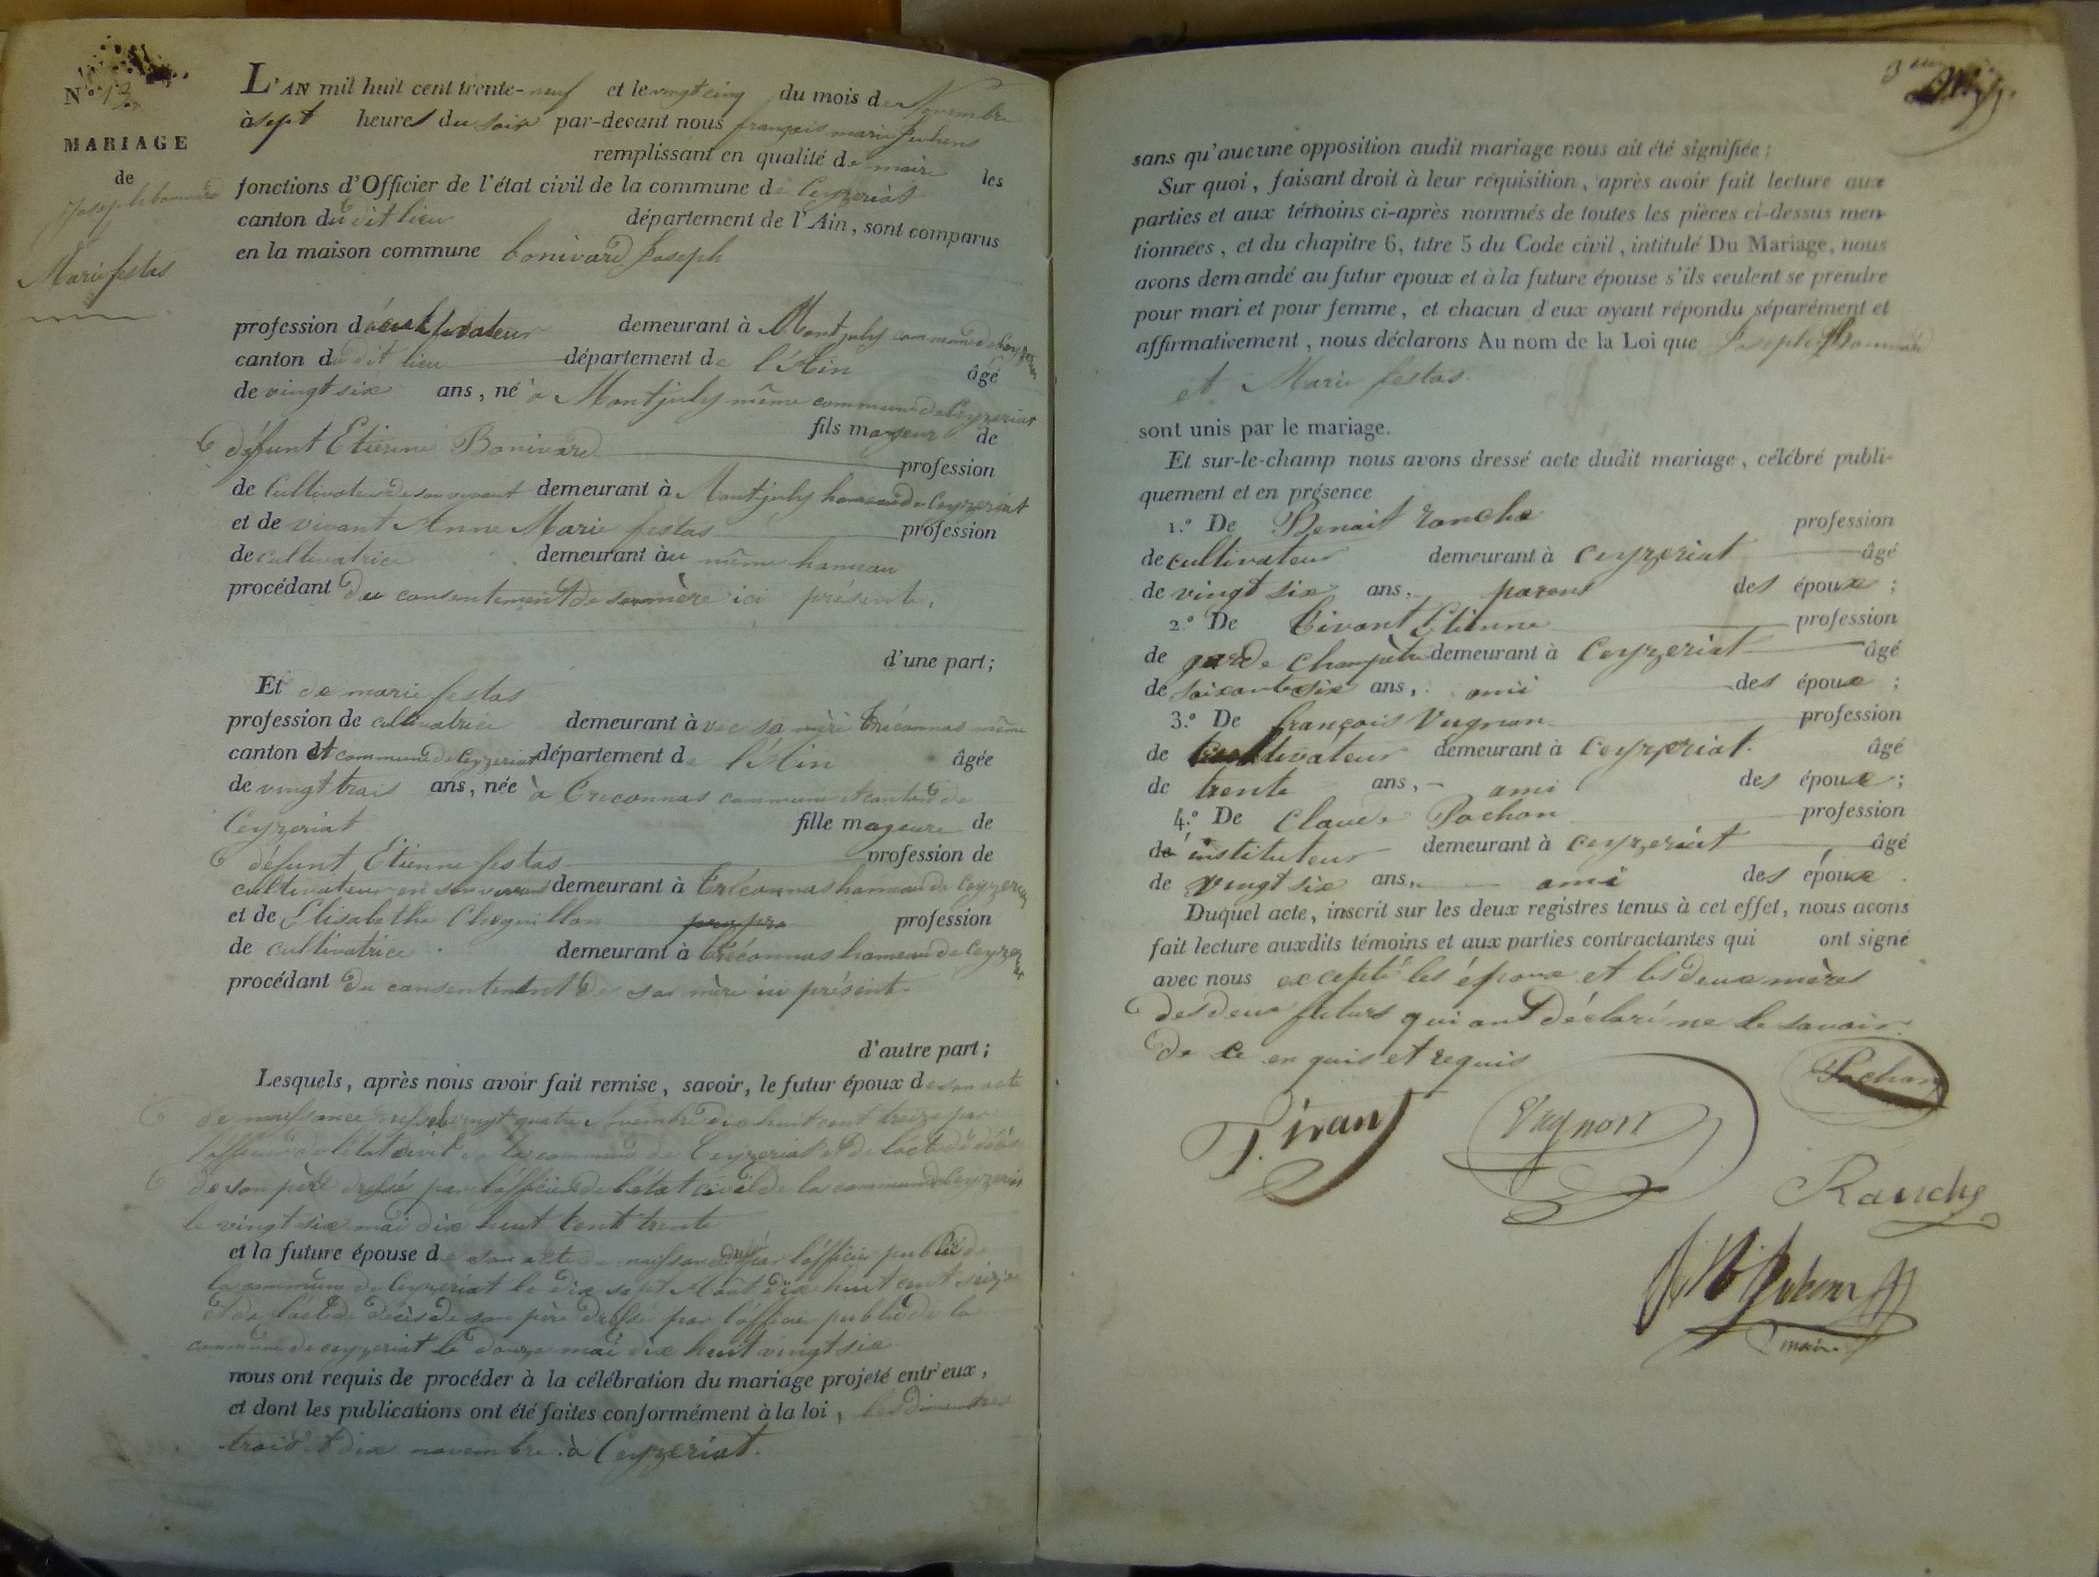 N.º 13
MARIAGE
de
Joseph bonivard
Marie festas
L'AN mil huit cent trente-neuf et le vingt cinq du mois de Novembre
à sept heures du soir par-devant nous françois marie
remplissant en qualité de maire les
fonctions d'Officier de l'état civil de la commune de Ceyzeriat
canton du dit lieu département de l'Ain, sont comparus
en la maison commune bonivard Joseph
profession de cultivateur demeurant à Montjuly commune de Ceyzeriat
canton du dit lieu département de l'Ain âgé
de vingt six ans, né à Montjuly même commune de Ceyzeriat
fils majeur de
défunt Etienne Bonivard profession
de Cultivateur de son vivant demeurant à Montjuly hameau de Ceyzeriat
et de vivant Anne Marie festas profession
de cultivatrice demeurant au même hameau
procédant du consentement de sa mère ici présente,
d'une part;
Et de marie festas
profession de cultivatrice demeurant avec sa mère à tréconnas même
canton et commune de Ceyzeriat département de l'Ain âgée
de vingt trois ans, née à Treconnas commune et canton de
Ceyzeriat fille majeure de
défunt Etienne festas profession de
cultivateur en son vivant demeurant à Tréconnas hameau de Ceyzeriat
et de Elisabeth profession
de cultivatrice demeurant à Tréconnas hameau de Ceyzeriat
procédant du consentement de sa mère ici présente
d'autre part;
Lesquels, après nous avoir fait remise, savoir, le futur époux de son acte
de naissance dressé le vingt quatre novembre dix huit cent treize par
l'officier de l'état civil de la commune de Ceyzeriat et de l'acte de décès
de son père dressé par l'officier de l'état civil de la commune de Ceyzeriat
le vingt six mai dix huit cent trente
et la future épouse de son acte de naissance dressé par l'officier public de
la commune de Ceyzeriat le dix sept Août dix huit cent seize
et de l'acte de décès de son père dressé par l'officier public de la
commune de ceyzeriat le douze mai dix huit vingt six
nous ont requis de procéder à la célébration du mariage projeté entr'eux,
et dont les publications ont été faites conformément à la loi, les dimanches
trois et dix novembre à Ceyzeriat.
sans qu'aucune opposition audit mariage nous ait été signifiée;
Sur quoi, faisant droit à leur réquisition, après avoir fait lecture aux
parties et aux témoins ci-après nommés de toutes les pièces ci-dessus men-
tionnées, et du chapitre 6, titre 5 du Code civil, intitulé Du Mariage, nous
avons demandé au futur epoux et à la future épouse s'ils veulent se prendre
pour mari et pour femme, et chacun d'eux ayant répondu séparément et
affirmativement, nous déclarons Au nom de la Loi que Joseph Bonivard
et Marie festas
sont unis par le mariage.
Et sur-le-champ nous avons dressé acte dudit mariage, célébré publi-
quement et en présence
1.º De Benait ranche profession
de cultivateur demeurant à ceyzeriat âgé
de vingt six ans, parent des époux;
2.º De Tivant Etienne profession
de garde champêtre demeurant à Ceyzeriat âgé
de soixante six ans, ami des époux;
3.º De françois Vugnon profession
de cultivateur demeurant à Ceyzeriat âgé
de trente ans, ami des époux;
4.º De Claude Pochon profession
de instituteur demeurant à ceyzeriat âgé
de vingt six ans, ami des époux.
Duquel acte, inscrit sur les deux registres tenus à cet effet, nous avons
fait lecture auxdits témoins et aux parties contractantes qui ont signé
avec nous excepté les époux et les deux mères
des deux futurs qui ont déclaré ne le savoir
de ce en quis et requis
Pochon
Tivant
Vugnon
Ranche
maire